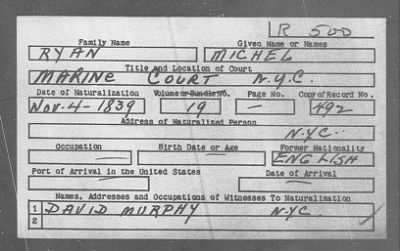 R 500
Family Name Given Name or Names
RYAN MICHEL
Title and Location of Court
MARINE COURT N.Y.C.
Date of Naturalization Volume or Bundle No. Page No. Copy of Record No.
NOV. 4 - 1839 19 — 492
Address of Naturalized Person
N.Y.C.
Occupation Birth Date or Age Former Nationality
— — ENGLISH
Port of Arrival in the United States Date of Arrival
— —
Names, Addresses and Occupations of Witnesses To Naturalization
1 DAVID MURPHY N.Y.C.
2